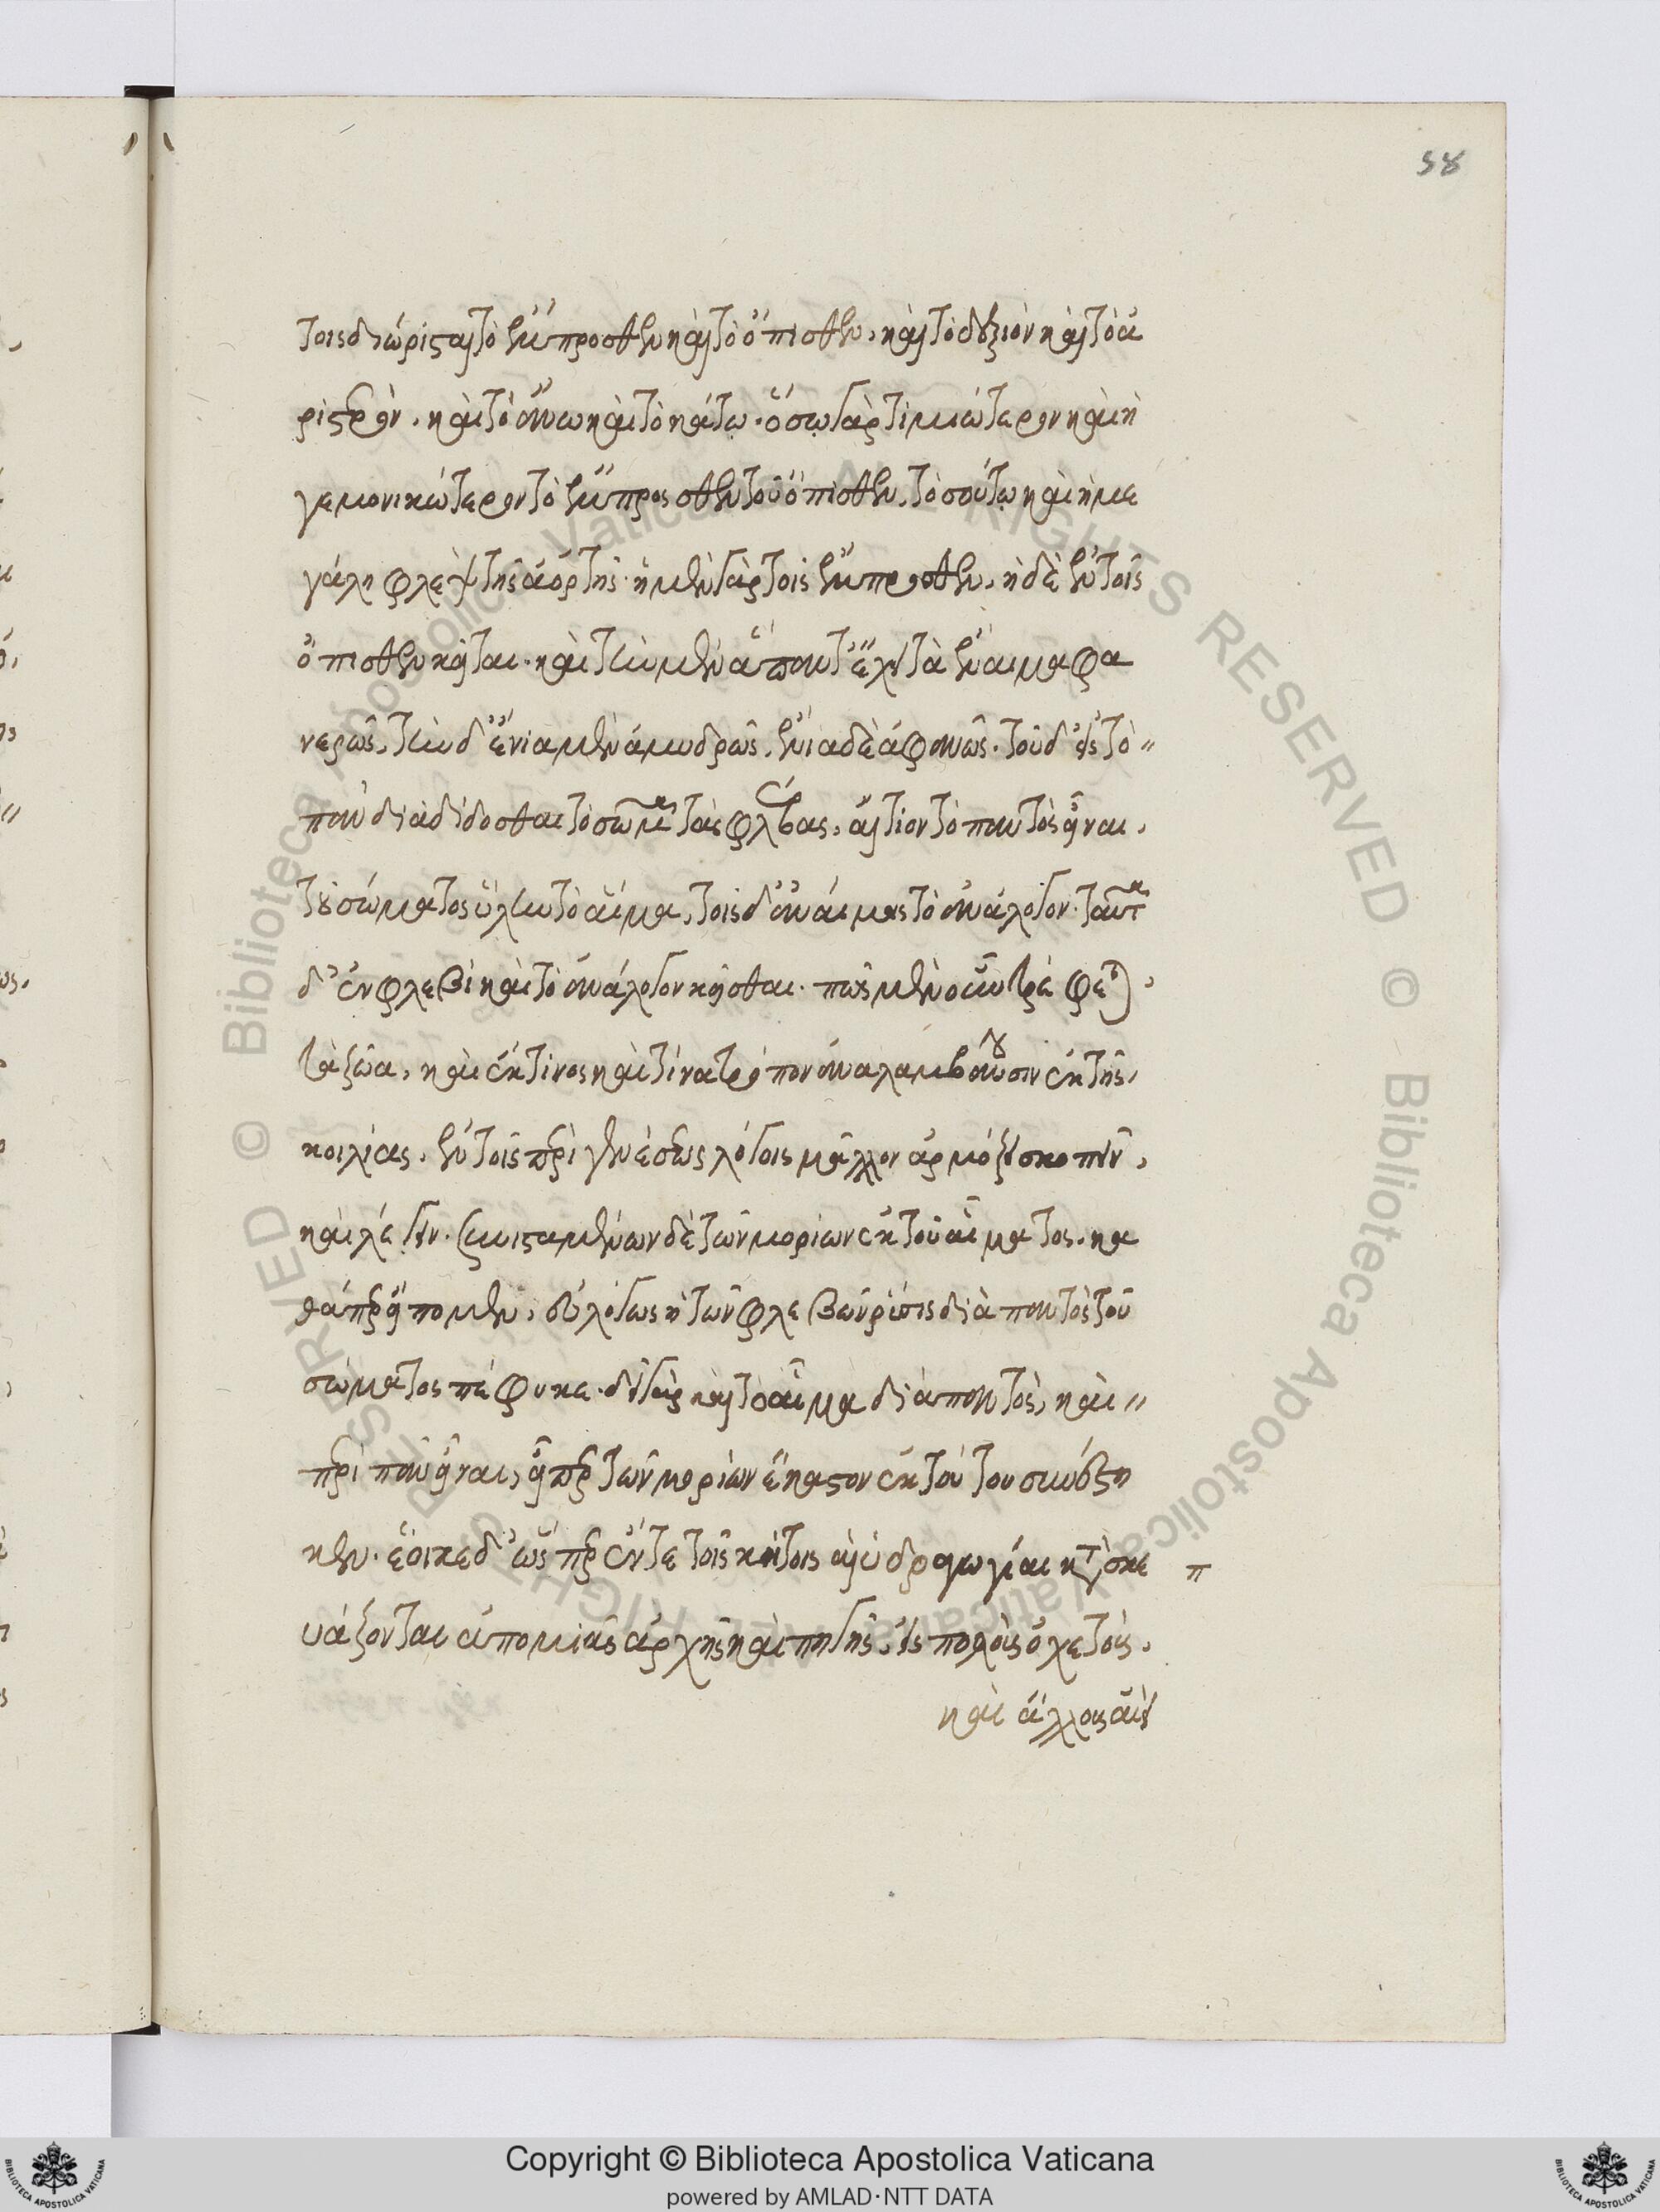 58
τοις διώρισται τὸ ἔμπροσθεν καὶ τὸ ὄπισθεν, καὶ τὸ δεξιὸν καὶ τὸ ἀ
ριστερόν, καὶ τὸ ἄνω καὶ τὸ κάτω. ὅσῳ γὰρ τιμιώτερον καὶ ἡ
γεμονικώτερον τὸ ἔμπροσθεν τοῦ ὄπισθεν, τοσούτῳ καὶ ἡ με
γάλη φλὲψ τῆς ἀορτῆς· ἡ μὲν γὰρ τοῖς ἔμπροσθεν, ἡ δὲ ἐν τοῖς
ὄπισθεν κεῖται. καὶ τὴν μὲν ἅπαντ' ἔχει τὰ ἔναιμα φα
νερῶς, τὴν δ' ἔνια μὲν ἀμυδρῶς, ἔνια δὲ ἀφανῶς. τοῦ δ' εἰς τὸ
πᾶν διαδίδοσθαι τὸ σῶμα τὰς φλέβας, αἴτιον τὸ παντὸς εἶναι,
τοῦ σώματος ὕλην τὸ αἷμα, τοῖς δ' ἀναίμοις τὸ ἀνάλογον. ταῦτα
δ' ἐν φλεβὶ καὶ τὸ ἀνάλογον κεῖσθαι. πῶς μὲν οὖν τρέφεται,
τὰ ζῶα, καὶ ἐκ τίνος καὶ τίνα τρόπον ἀναλαμβάνουσιν ἐκ τῆς,
κοιλίας, ἐν τοῖς περὶ γενέσεως λόγοις μᾶλλον ἁρμόζει σκοπεῖν,
καὶ λέγειν. συνισταμένων δὲ τῶν μορίων ἐκ τοῦ αἵματος, κα
θάπερ εἴπομεν, εὐλόγως ἡ τῶν φλεβῶν ῥύσις διὰ παντὸς τοῦ
σώματος πέφυκε. δεῖ γὰρ καὶ τὸ αἷμα διὰ παντὸς, καὶ
περὶ πᾶν εἶναι, εἴπερ τῶν μορίων ἕκαστον ἐκ τούτου συνέστη
κεν. ἔοικε δ' ὥσπερ ἔν τε τοῖς κήποις αἱ ὑδραγωγίαι κατασκε π
υάζονται ἀπὸ μιᾶς ἀρχῆς καὶ πηγῆς, εἰς πολλοὺς ὀχετοὺς,
καὶ ἄλλους ἀεὶ
Copyright © Biblioteca Apostolica Vaticana
powered by AMLAD·NTT DATA